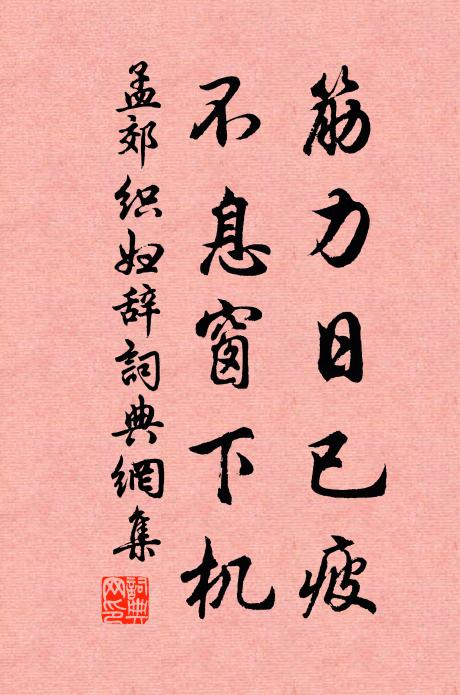 筋力日已疲
不息窗下机
孟郊织妇辞詞典網集
詞典网印